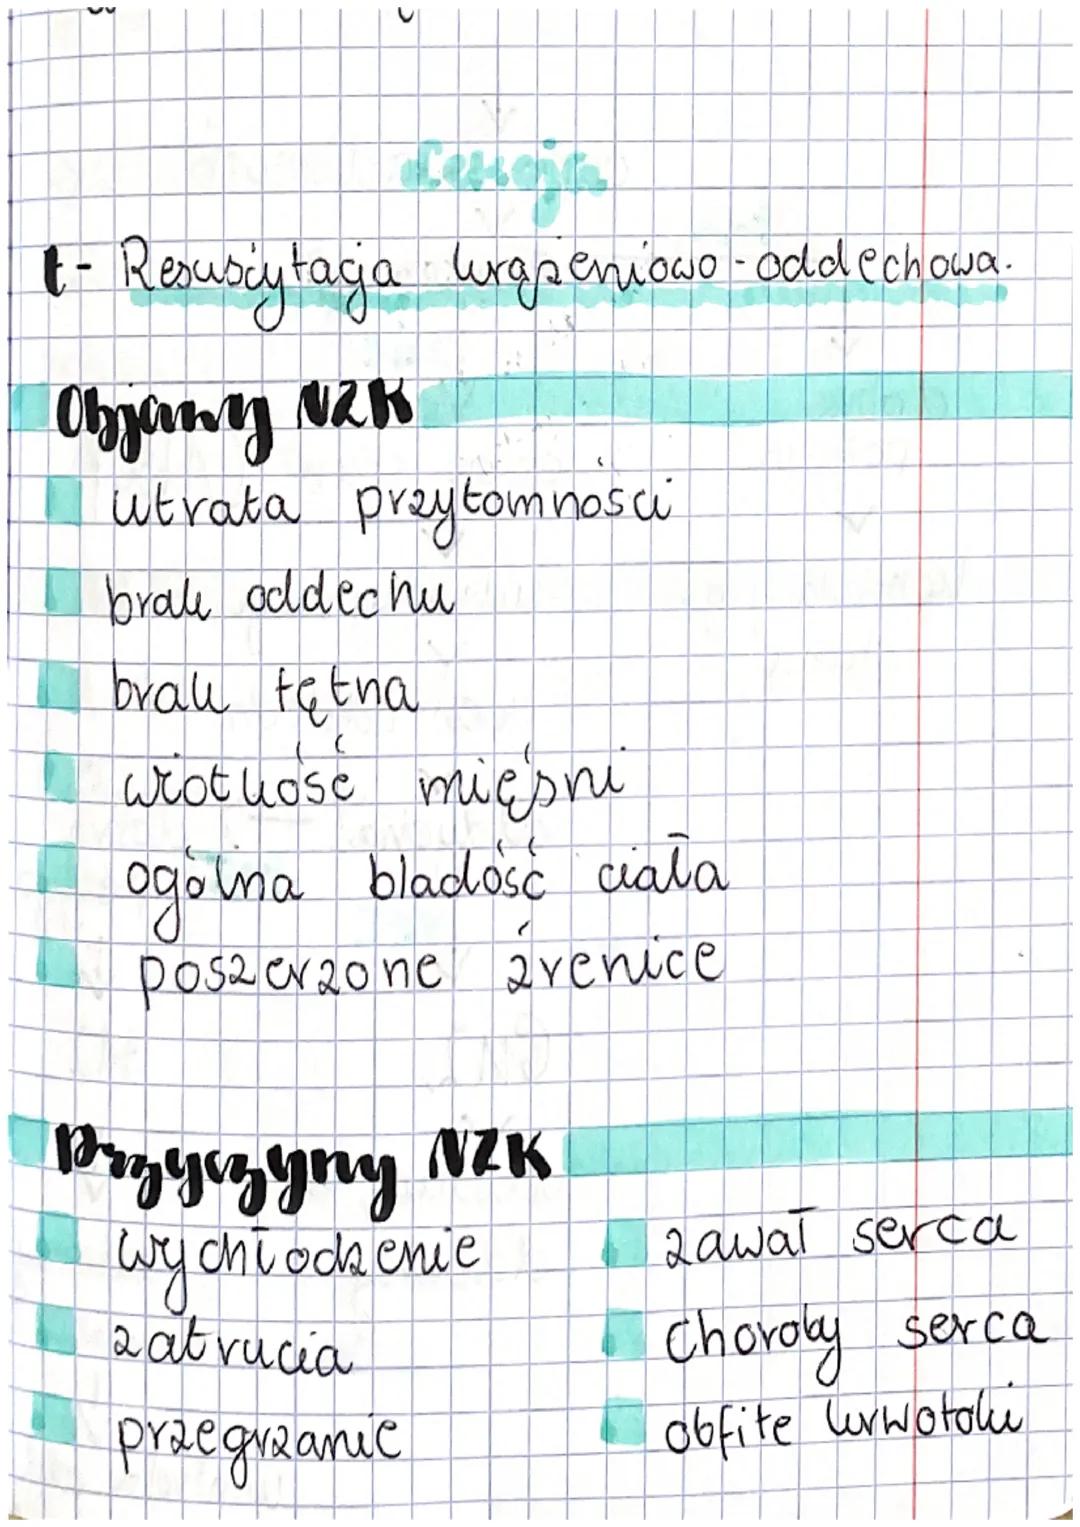 Lekcja
t- Resuscytacja krążeniowo-oddechowa.
Objawy NZK
utrata przytomności
brak oddechu
brak tętna
wiotkość mięśni
ogólna bladość ciała
poszerzone źrenice
Przyczyny NZK
wychłodzenie
zatrucia
przegrzanie
zawał serca
Choroby serca
obfite krwotoki